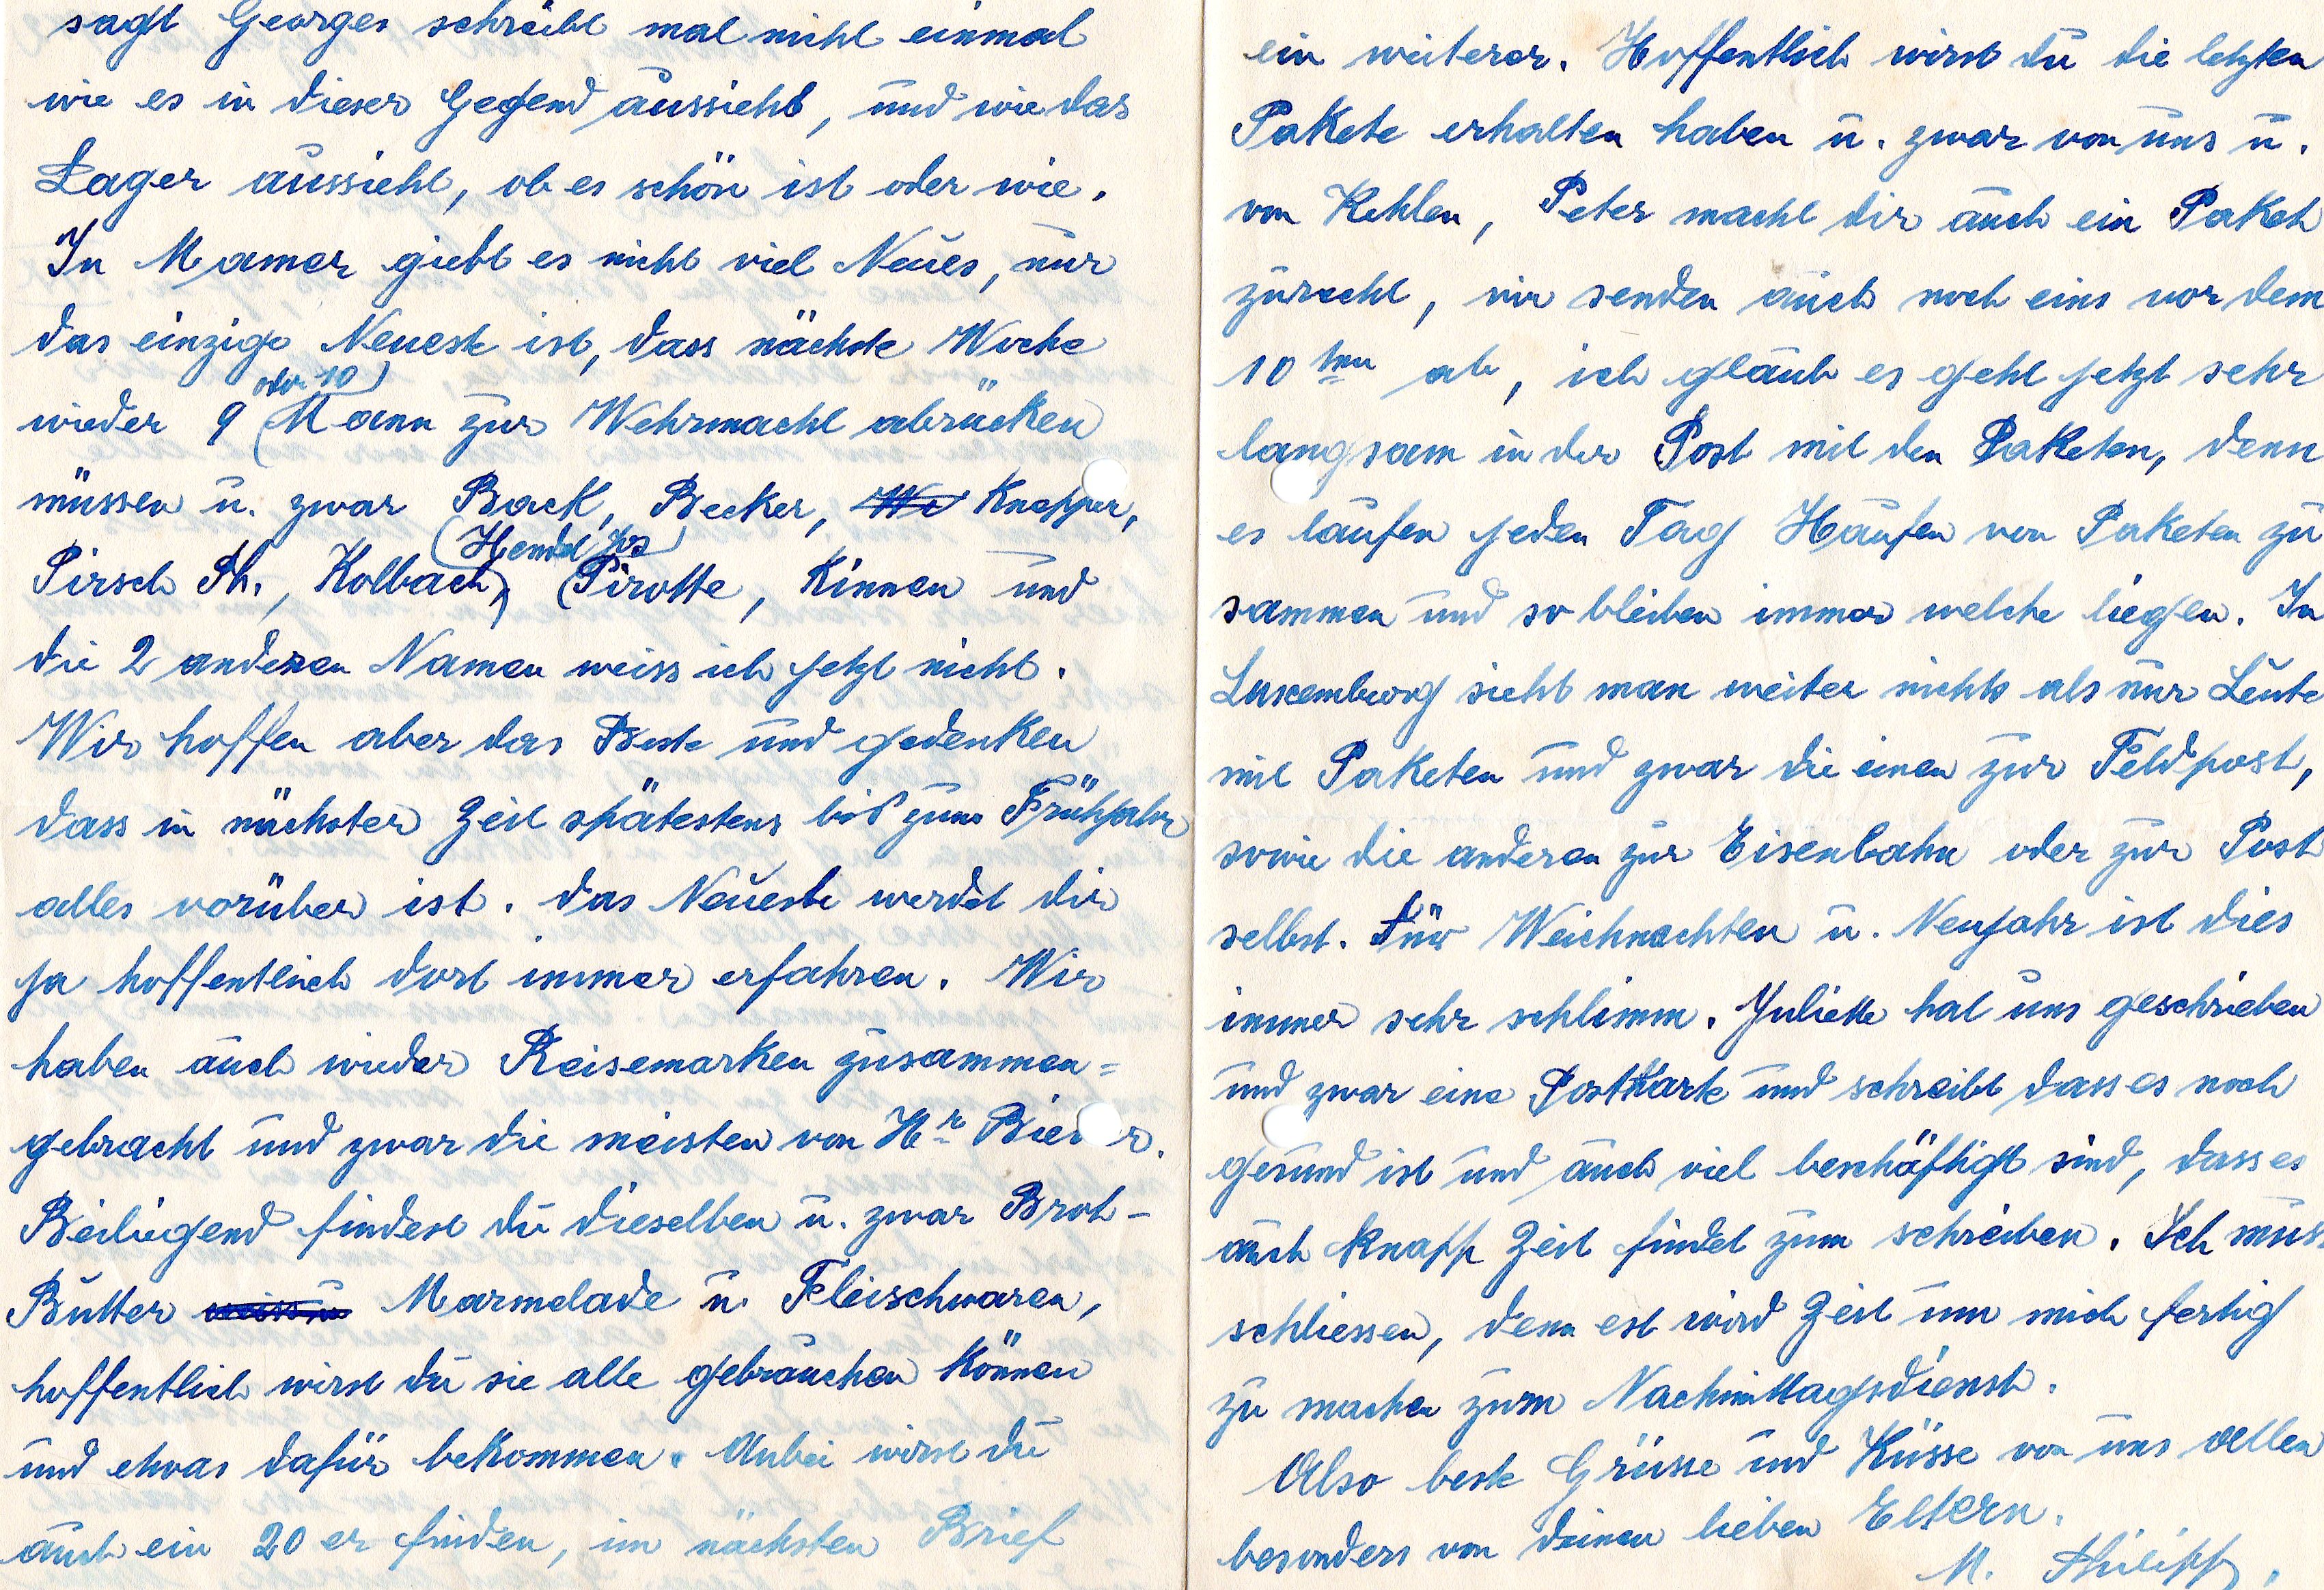 sagt Georges schreibt mal nicht einmal
wie es in dieser Gegend aussieht, und wie das
Lager aussieht, ob es schön ist oder wie.
In Mamer giebt es nicht viel Neues, nur
das einzige Neueste ist, dass nächste Woche
oder 10
wieder 9 Mann zur Wehrmacht abrücken
müssen u. zwar Back, Becker, Knepper,
Hendel Jos
Pirsch Th., Kolbach, Pirotte, Kinnen und
die 2 anderen Namen weiss ich jetzt nicht.
Wir hoffen aber das Beste und gedenken
dass in nächster Zeit spätestens bis zum Frühjahr
alles vorüber ist. Das Neueste werdet dir
ja hoffentlich dort immer erfahren. Wir
haben auch wieder Reisemarken zusammen=
gebracht und zwar die meisten von Hr
Beiliegend findest du dieselben u. zwar Brot-
Butter Marmelade u. Fleischwaren,
hoffentlich wirst du sie alle gebrauchen können
und etwas dafür bekommen. Anbei wirst du
auch ein 20 er finden, im nächsten Brief
ein weiterer. Hoffentlich wirst du die letzten
Pakete erhalten haben u. zwar von uns u.
von Kehlen, Peter macht dir auch ein Paket
zurecht, wir senden auch noch eins vor dem
10ten ab, ich glaub es geht jetzt sehr
langsam in der Post mit den Paketen, denn
es laufen jeden Tag Haufen von Paketen zu
sammen und so bleiben immer welche liegen. In
Luxemburg sieht man weiter nichts als nur Leute
mit Paketen und zwar die einen zur Feldpost,
sowie die anderen zur Eisenbahn oder zur Post
selbst. Für Weichnachten u. Neujahr ist dies
immer sehr schlimm. Juliette hat uns geschrieben
und zwar eine Postkarte und schreibt dass es noch
gesund ist und auch viel beschäftigt sind, dass es
auch knapp Zeit findet zum schreiben. Ich muss
schliessen, denn est wird Zeit um mich fertig
zu machen zum Nachmittagsdienst.
Also beste Grüsse und Küsse von uns allen
besonders von deinen lieben Eltern.
M. Philipp.